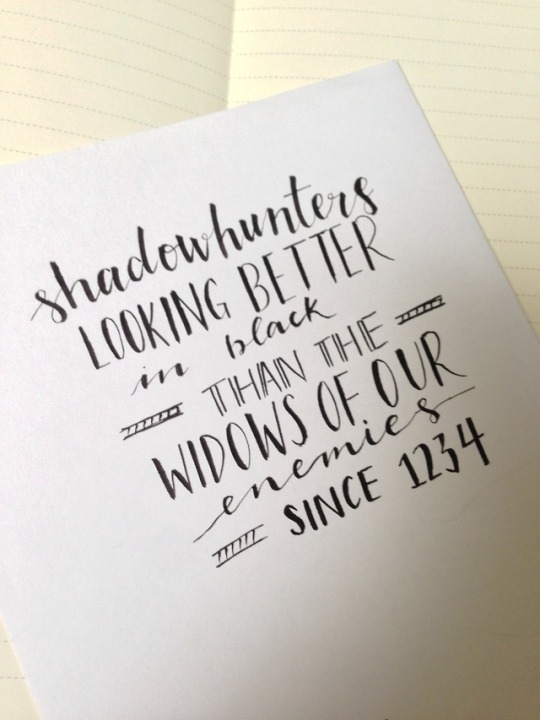 shadowhunters
LOOKING BETTER
in black
THAN THE
WIDOWS OF OUR
enemies
SINCE 1234